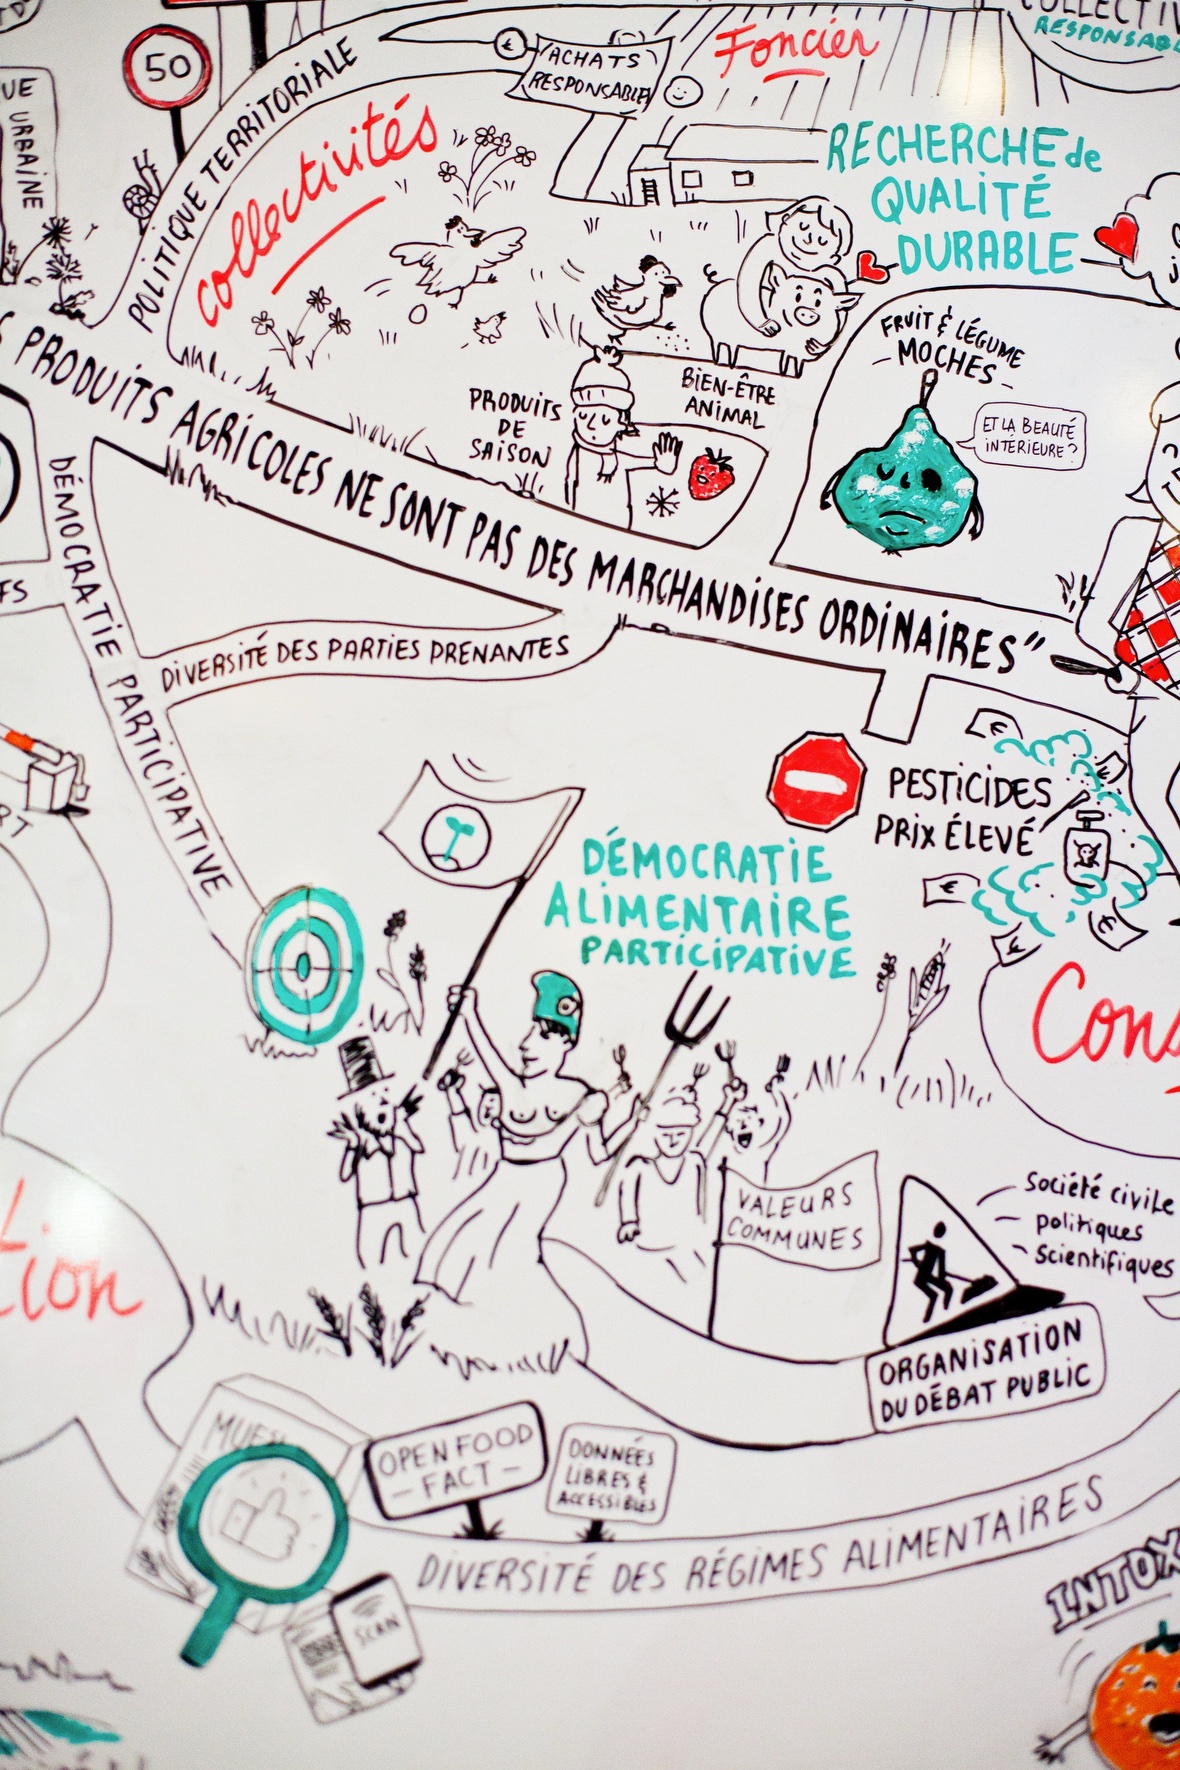 COLLECTIV
RESPONSABL
50
UE
URBAINE
POLITIQUE TERRITORIALE
€
ACHATS
RESPONSABLES
Foncier
collectivités
RECHERCHE de
QUALITÉ
DURABLE
FRUIT & LÉGUME
- MOCHES -
ET LA BEAUTÉ
INTÉRIEURE ?
PRODUITS
DE
SAISON
BIEN-ÊTRE
ANIMAL
S PRODUITS AGRICOLES NE SONT PAS DES MARCHANDISES ORDINAIRES"
FS
DÉMOCRATIE PARTICIPATIVE
DIVERSITÉ DES PARTIES PRENANTES
RT
PESTICIDES
PRIX ÉLEVÉ
€
€
€
€
DÉMOCRATIE
ALIMENTAIRE
PARTICIPATIVE
Cons
VALEURS
COMMUNES
Société civile
politiques
Scientifiques
ORGANISATION
DU DÉBAT PUBLIC
tion
MUES
OPEN FOOD
- FACT -
DONNÉES
LIBRES &
ACCESSIBLES
DIVERSITÉ DES RÉGIMES ALIMENTAIRES
SCAN
INTOX